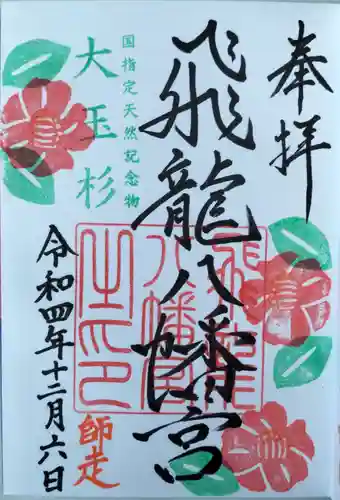 奉拝
飛龍八幡宮
飛龍八幡宮之印
国指定天然記念物
大玉杉
令和四年十二月六日
師走